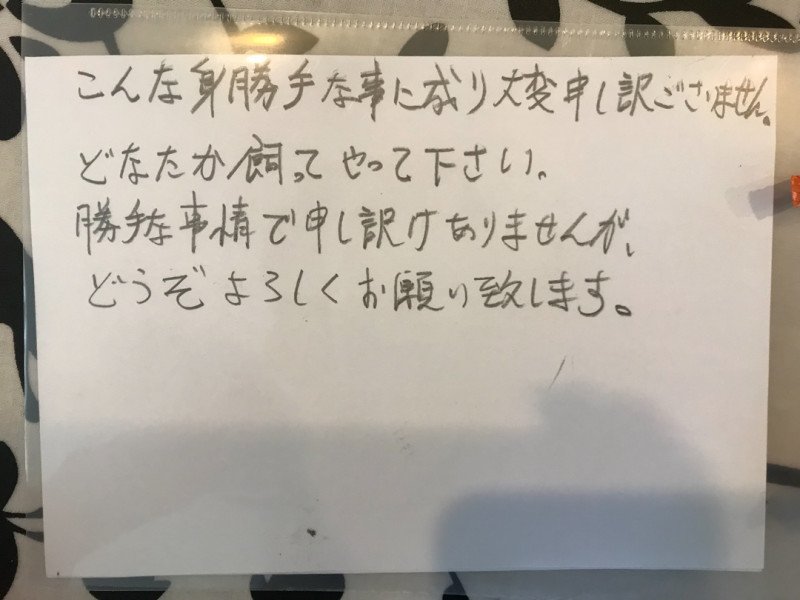 こんな身勝手な事に成り大変申し訳ございません。
どなたか飼ってやって下さい。
勝手な事情で申し訳けありませんが、
どうぞよろしくお願い致します。